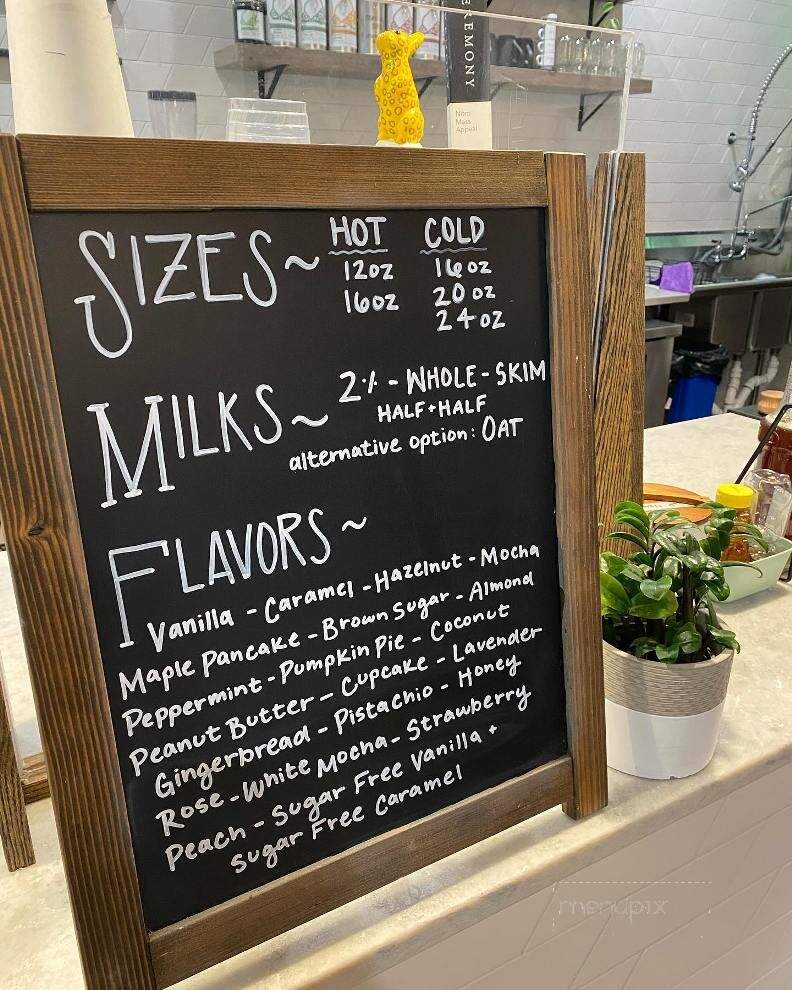 CEREMONY
Nitro
Mass
Appeal
SIZES~ HOT COLD
12oz 16oz
16oz 20oz
24oz
MILKS~ 2% - WHOLE - SKIM
HALF+HALF
alternative option: OAT
FLAVORS~
Vanilla - Caramel - Hazelnut - Mocha
Maple Pancake - Brown Sugar - Almond
Peppermint - Pumpkin Pie - Coconut
Peanut Butter - Cupcake - Lavender
Gingerbread - Pistachio - Honey
Rose - White Mocha - Strawberry
Peach - Sugar Free Vanilla +
Sugar Free Caramel
menupix